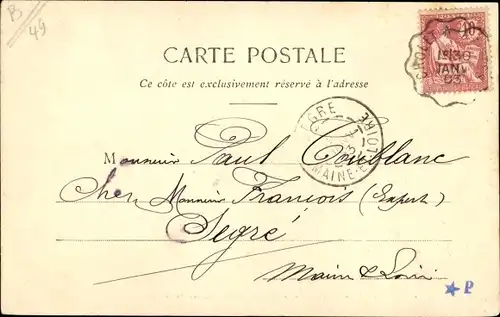 B
49
CARTE POSTALE
Ce côté est exclusivement réservé à l'adresse
10
30
JANV
03
SEGRE
MAINE-ET-LOIRE
Monsieur Paul Coublanc
Chez Monsieur François (Expert)
Segré
Maine & Loire
★ P